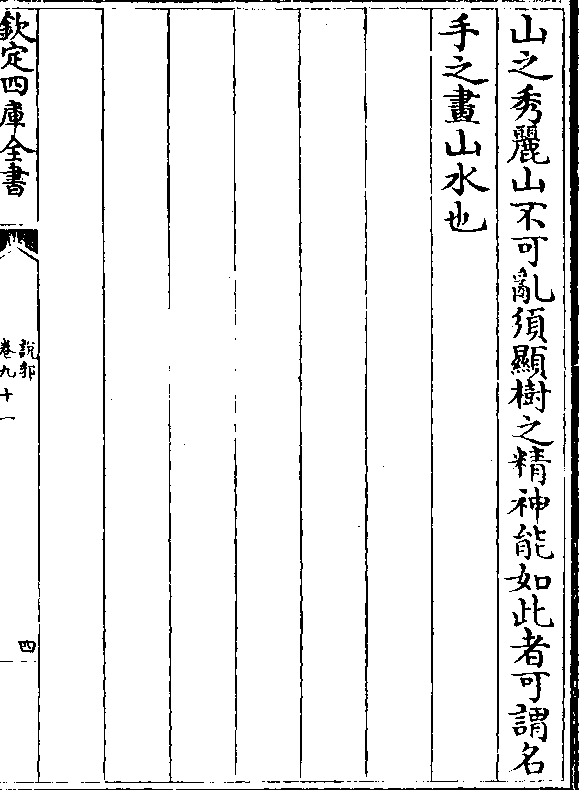 山之秀麗山不可亂須顯樹之精神能如此者可謂名
手之畫山水也
欽定四庫全書
說郛
卷九十一
四